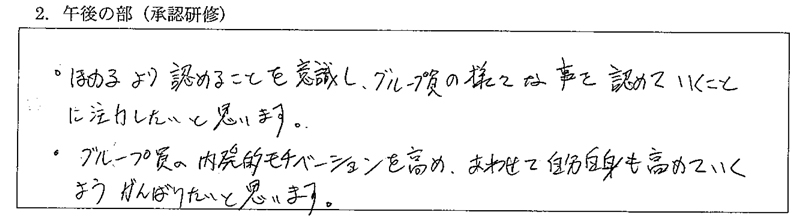 2. 午後の部（承認研修）
・ほめるより認めることを意識し、グループ員の様々な事を認めていくこと
に注力したいと思います。
・グループ員の内発的モチベーションを高め、あわせて自分自身も高めていく
ようがんばりたいと思います。